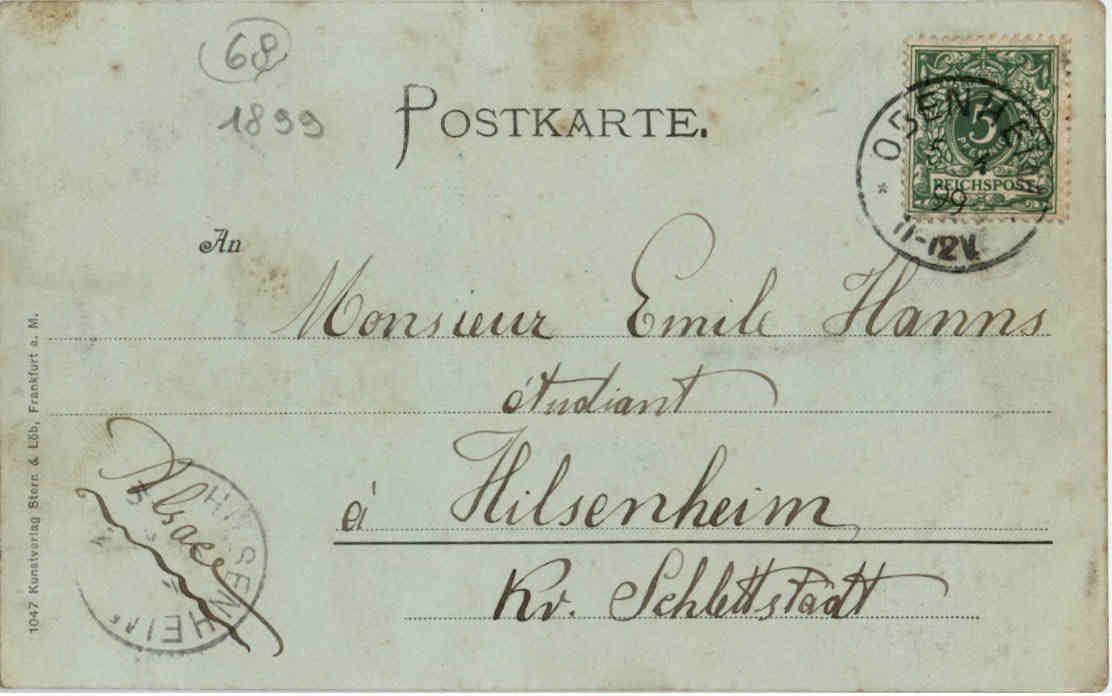 68
1899
POSTKARTE.
5
PFENNIG
REICHSPOST
OSENHEIM
5 4
99
11-12V.
An
Monsieur Emile Hanns
étudiant
à Hilsenheim
Kr. Schlettstadt
Alsace
HILSENHEIM
1047 Kunstverlag Stern & Löb, Frankfurt a. M.